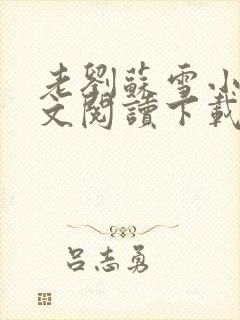 老劉蘇雪小
文閱讀下載
呂志勇